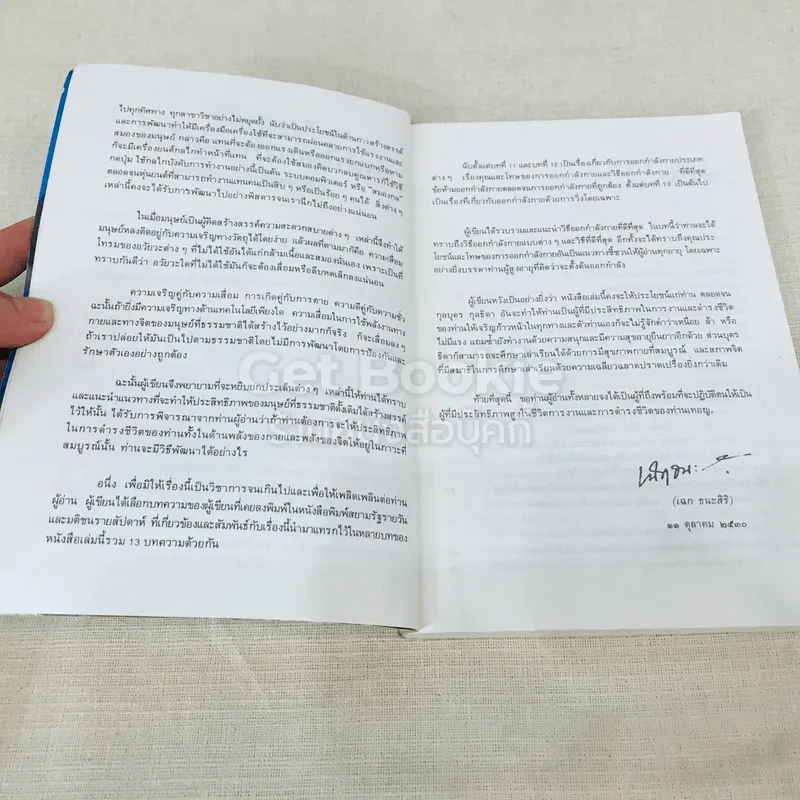 ไปทุกทิศทาง ทุกสาขาวิชาอย่างไม่หยุดยั้ง นับว่าเป็นประโยชน์ในด้านการสร้างสรรค์
และการพัฒนาทำให้มีเครื่องมือเครื่องใช้ที่จะสามารถผ่อนคลายการใช้แรงงานและ
สมองของมนุษย์ กล่าวคือ แทนที่จะต้องออกแรงเดินหรือออกแรงยกแบกหรือหาม
ก็จะมีเครื่องยนต์กลไกทำหน้าที่แทน ที่จะต้องใช้สมองคิดบวกลบคูณหารก็ใช้วิธี
กดปุ่ม ใช้กลไกบังคับการทำงานอย่างนี้เป็นต้น ระบบคอมพิวเตอร์ หรือ "สมองกล"
ตลอดจนหุ่นยนต์ที่สามารถทำงานแทนคนเป็นสิบ ๆ หรือเป็นร้อย ๆ คนได้ สิ่งต่าง ๆ
เหล่านี้คงจะได้รับการพัฒนาไปอย่างพิสดารจนเรานึกไม่ถึงอย่างแน่นอน
ในเมื่อมนุษย์เป็นผู้คิดสร้างสรรค์ความสะดวกสบายต่าง ๆ เหล่านี้จึงทำให้
มนุษย์หลงติดอยู่กับความเจริญทางวัตถุได้โดยง่าย แล้วผลที่ตามมาก็คือ ความเสื่อม
โทรมของอวัยวะต่าง ๆ ที่ไม่ได้ใช้อันได้แก่กล้ามเนื้อและสมองนั่นเอง เพราะเป็นที่
ทราบกันดีว่า อวัยวะใดที่ไม่ได้ใช้มันก็จะต้องเสื่อมหรือลีบหดเล็กลงแน่นอน
ความเจริญคู่กับความเสื่อม การเกิดคู่กับการตาย ความดีคู่กับความชั่ว
ฉะนั้นถ้ายิ่งมีความเจริญทางด้านเทคโนโลยีเพียงใด ความเสื่อมในการใช้พลังงานทาง
กายและทางจิตของมนุษย์ที่ธรรมชาติได้สร้างไว้อย่างมากก็จริง ก็จะเสื่อมลง ๆ
ถ้าเราปล่อยให้มันเป็นไปตามธรรมชาติโดยไม่มีการพัฒนาโดยการป้องกันและ
รักษาตัวเองอย่างถูกต้อง
ฉะนั้นผู้เขียนจึงพยายามที่จะหยิบยกประเด็นต่าง ๆ เหล่านี้ให้ท่านได้ทราบ
และแนะนำแนวทางที่จะทำให้ประสิทธิภาพของมนุษย์ที่ธรรมชาติดั้งเดิมได้สร้างสรรค์
ไว้ให้นั้น ได้รับการพิจารณาจากท่านผู้อ่านว่าถ้าท่านต้องการจะให้ประสิทธิภาพ
ในการดำรงชีวิตของท่านทั้งในด้านพลังของกายและพลังของจิตให้อยู่ในภาวะที่
สมบูรณ์นั้น ท่านจะมีวิธีพัฒนาได้อย่างไร
อนึ่ง เพื่อมิให้เรื่องนี้เป็นวิชาการจนเกินไปและเพื่อให้เพลิดเพลินต่อท่าน
ผู้อ่าน ผู้เขียนได้เลือกบทความของผู้เขียนที่เคยลงพิมพ์ในหนังสือพิมพ์สยามรัฐรายวัน
และมติชนรายสัปดาห์ ที่เกี่ยวข้องและสัมพันธ์กับเรื่องนี้นำมาแทรกไว้ในหลายบทของ
หนังสือเล่มนี้รวม 13 บทความด้วยกัน
นับตั้งแต่บทที่ 11 และบทที่ 12 เป็นเรื่องเกี่ยวกับการออกกำลังกายประเภท
ต่าง ๆ เรื่องคุณและโทษของการออกกำลังกายและวิธีออกกำลังกาย ที่ดีที่สุด
ข้อห้ามออกกำลังกายตลอดจนการออกกำลังกายที่ถูกต้อง ตั้งแต่บทที่ 13 เป็นต้นไป
เป็นเรื่องที่เกี่ยวกับออกกำลังกายด้วยการวิ่งโดยเฉพาะ
ผู้เขียนได้รวบรวมและแนะนำวิธีออกกำลังกายที่ดีที่สุด ในบทนี้ว่าท่านจะได้
ทราบถึงวิธีออกกำลังกายแบบต่าง ๆ และวิธีที่ดีที่สุด อีกทั้งจะได้ทราบถึงคุณประ-
โยชน์และโทษของการออกกำลังกายอันเป็นแนวทางชี้ชวนให้ผู้อ่านทุกอายุ โดยเฉพาะ
อย่างยิ่งบรรดาท่านผู้สูงอายุที่คิดว่าจะตั้งต้นออกกำลัง
ผู้เขียนหวังเป็นอย่างยิ่งว่า หนังสือเล่มนี้คงจะให้ประโยชน์แก่ท่าน ตลอดจน
กุลบุตร กุลธิดา อันจะทำให้ท่านเป็นผู้ที่มีประสิทธิภาพในการงานและดำรงชีวิต
ของท่านให้เจริญก้าวหน้าในทุกทางและตัวท่านเองก็จะไม่รู้จักคำว่าเหนื่อย ล้า หรือ
ไม่มีแรง แถมซ้ำยังทำงานด้วยความสนุกและมีความสุขอายุยืนยาวอีกด้วย ส่วนบุตร
ธิดาก็สามารถจะศึกษาเล่าเรียนได้ด้วยการมีสุขภาพกายที่สมบูรณ์ และสภาพจิต
ที่มีสมาธิในการศึกษาเล่าเรียนด้วยความเฉลียวฉลาดปราดเปรื่องยิ่งกว่าเดิม
ท้ายที่สุดนี้ ขอท่านผู้อ่านทั้งหลายจงได้เป็นผู้ที่ถึงพร้อมที่จะปฏิบัติตนให้เป็น
ผู้ที่มีประสิทธิภาพสูงในชีวิตการงานและการดำรงชีวิตของท่านเทอญ.
(เฉก ธนะสิริ)
๑๑ ตุลาคม ๒๕๓๐
Get Bookie